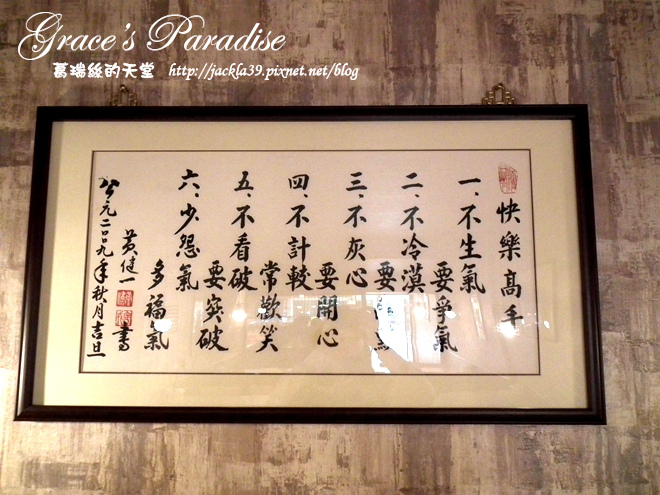 Grace's Paradise
葛瑞絲的天堂 http://jackla39.pixnet.net/blog
快樂高手
一、不生氣
要爭氣
二、不冷漠
要
三、不灰心
要開心
四、不計較
常歡笑
五、不看破
要突破
六、少怨氣
多福氣
黃健一
書
公元二〇〇九年秋月吉旦